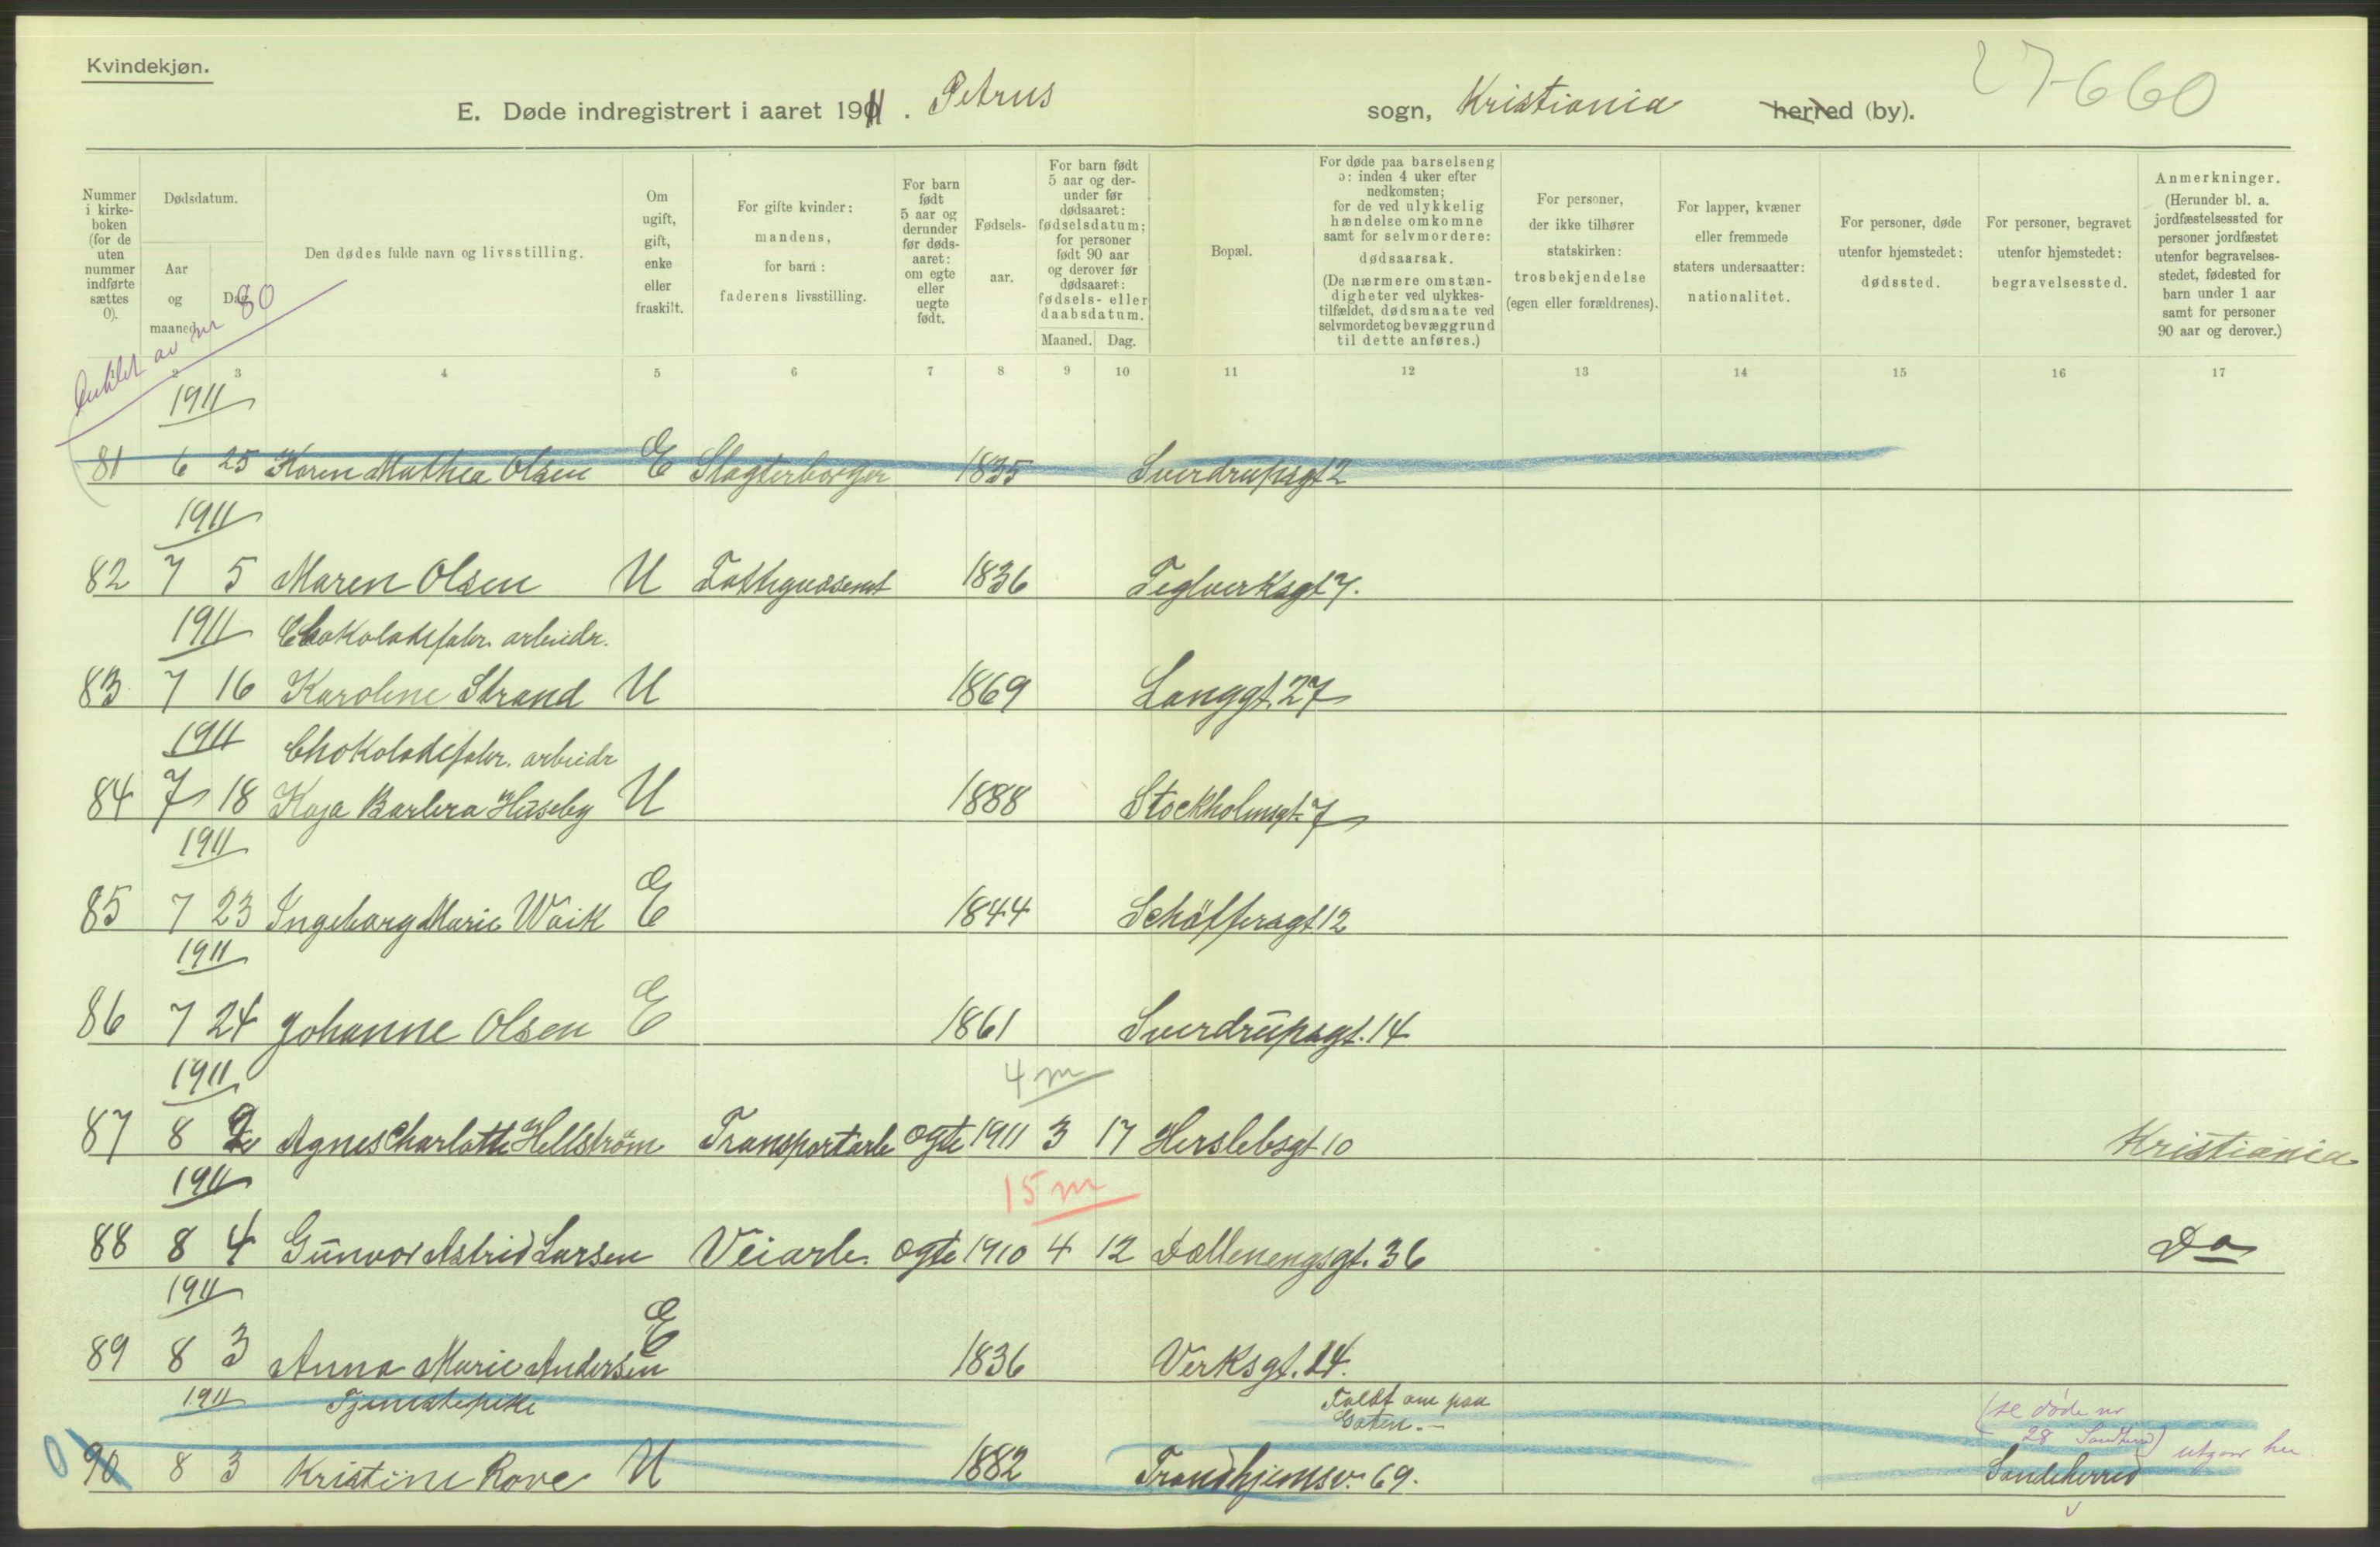 Kvindekjøn.
27-660
E. Døde indregistrert i aaret 1911. Petrus sogn, Kristiania herred (by).
Nummer i kirkeboken (for de uten nummer indførte sættes 0).
Dødsdatum.
Aar og maaned.
Dag.
Den dødes fulde navn og livsstilling.
Om ugift, gift, enke eller fraskilt.
For gifte kvinder: mandens, for barn: faderens livsstilling.
For barn født 5 aar og derunder før dødsaaret: om egte eller uegte født.
Fødselsaar.
For barn født 5 aar og derunder før dødsaaret: fødselsdatum; for personer født 90 aar og derover før dødsaaret: fødsels- eller daabsdatum.
Maaned. Dag.
Bopæl.
For døde paa barselseng ɔ: inden 4 uker efter nedkomsten; for de ved ulykkelig hændelse omkomne samt for selvmordere: dødsaarsak. (De nærmere omstændigheter ved ulykkestilfældet, dødsmaate ved selvmordet og bevæggrund til dette anføres.)
For personer, der ikke tilhører statskirken: trosbekjendelse (egen eller forældrenes).
For lapper, kvæner eller fremmede staters undersaatter: nationalitet.
For personer, døde utenfor hjemstedet: dødssted.
For personer, begravet utenfor hjemstedet: begravelsessted.
Anmerkninger. (Herunder bl. a. jordfæstelsessted for personer jordfæstet utenfor begravelsesstedet, fødested for barn under 1 aar samt for personer 90 aar og derover.)
av nr 80
2 3 4 5 6 7 8 9 10 11 12 13 14 15 16 17
1911
81 6 25 Karen Mathea Olsen E Slagterborger 1835 Sverdrupsgt 2
1911
82 7 5 Maren Olsen U Fattigvæsenet 1836 Teglverksgt 7.
1911 Chokoladefabr. arbeidr.
83 7 16 Karoline Strand U 1869 Langgt. 27
1911 Chokoladefabr. arbeidr
84 7 18 Kaja Barbra Huseby U 1888 Stockholmsgt. 7
1911
85 7 23 Ingeborg Marie Waik E 1844 Schäffersgt. 12
1911
86 7 24 Johanne Olsen E 1861 Sverdrupsgt. 14
1911 4 m
87 8 2 Agnes Charlotte Hellstrøm Transportarb egte 1911 3 17 Herslebsgt 10 Kristiania
1911 15 m
88 8 4 Gunvor Astrid Larsen Veiarb. egte 1910 4 12 Dællenengsgt. 36 Do
1911
89 8 3 Anna Marie Andersen E 1836 Verksgt. 14.
1911 Tjenestepike Faldt om paa
Gaten. — (se døde nr
28 Sandherred) utgaar her.
0 90 8 3 Kristine Rove U 1882 Trondhjemsv. 69. Sandeherred